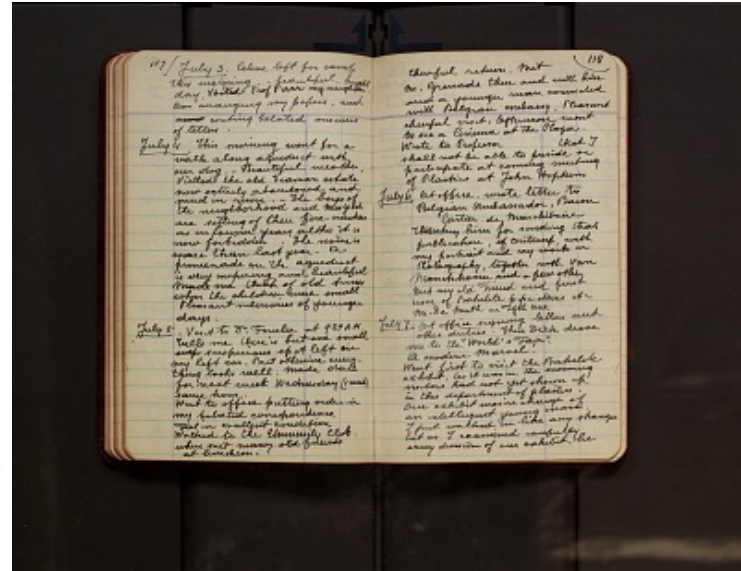 117/ July 3. Celine left for
this morning. beautiful
day. Visited Prof Parr my neighbor
Am arranging my papers, and
writing belated answers
of letters.
July 4. This morning went for a
walk along aqueduct with
our dog. Beautiful weather.
Visited the old estate
now entirely abandoned and
and in ruins. The boys of
the neighborhood and
are setting off their fire
as in former years altho' it is
now forbidden. The noise is
worse than last year. A
promenade on the aqueduct
is very inspiring and beautiful
Made me think of old times
when the children were small
Pleasant memories of younger
days.
July 5. Visit to Dr. at 9:30 A.M.
Tells me there is but one small
suspicious spot left on
my left ear. But otherwise every
thing looks well. Made date
for next week Wednesday
same hour.
Went to office putting order in
my belated correspondence
in excellent condition
Walked to the University Club
where met many old friends
at luncheon.
118
cheerful return. Met
Mr. there and with him
also a younger man connected
with Belgian embassy. Pleasant
cheerful visit. Afternoon went
to see a Cinema at the Plaza.
Wrote to Professor that I
shall not be able to preside or
participate at coming meeting
of Plastics at John Hopkins
July 6. At office. wrote letter to
Belgian Ambassador, Baron
Cartier de Marchienne
thanking him for sending that
publication, of Centenary, with
my portrait and my work in
Photography, together with Van
and a few others
Met my old friend and first
user of Bakelite
Mr. on 5th Ave.
July 7. At office signing letters and
other duties. Then Dick drove
me to the World's "Fair"
A modern Marvel.
Went first to visit the Bakelite
exhibit. As it was in the morning
visitors had not yet shown up
in the department of plastics.
Our exhibit in charge of
an intelligent young man.
I just walked in like any stranger
but as I examined carefully
every division of our exhibit he